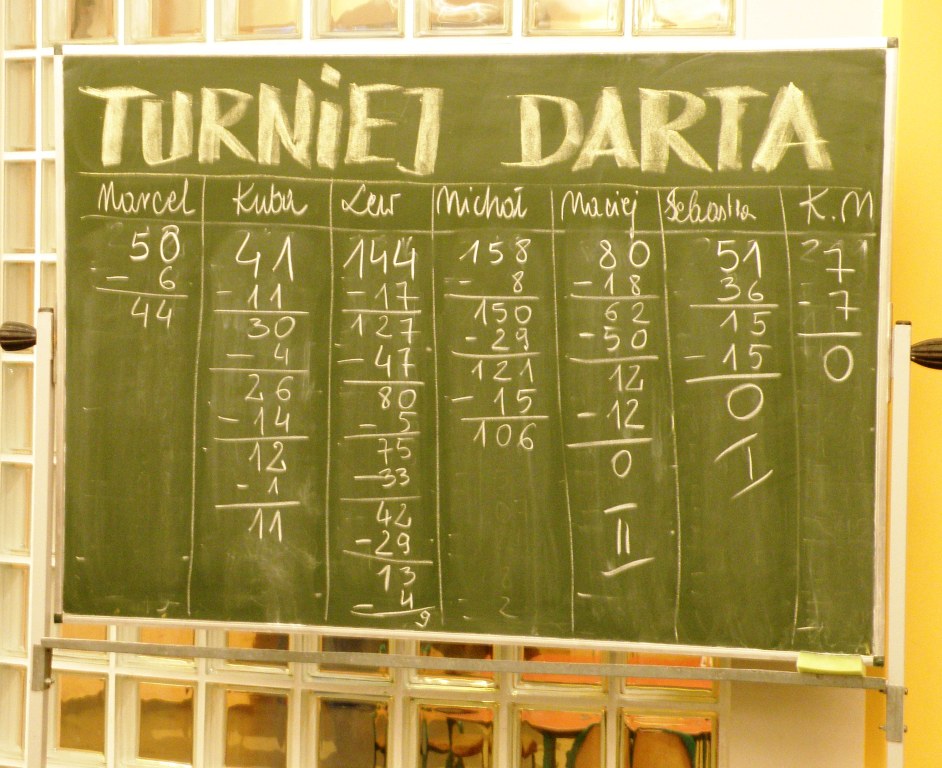 TURNIEJ DARTA
Marcel
50
- 6
44
Kuba
41
- 11
30
- 4
26
- 14
12
- 1
11
Lew
144
- 17
127
- 47
80
- 5
75
- 33
42
- 29
13
- 4
9
Michał
158
- 8
150
- 29
121
- 15
106
Maciej
80
- 18
62
- 50
12
- 12
0
II
51
36
15
- 15
0
I
K. M
7
- 7
0